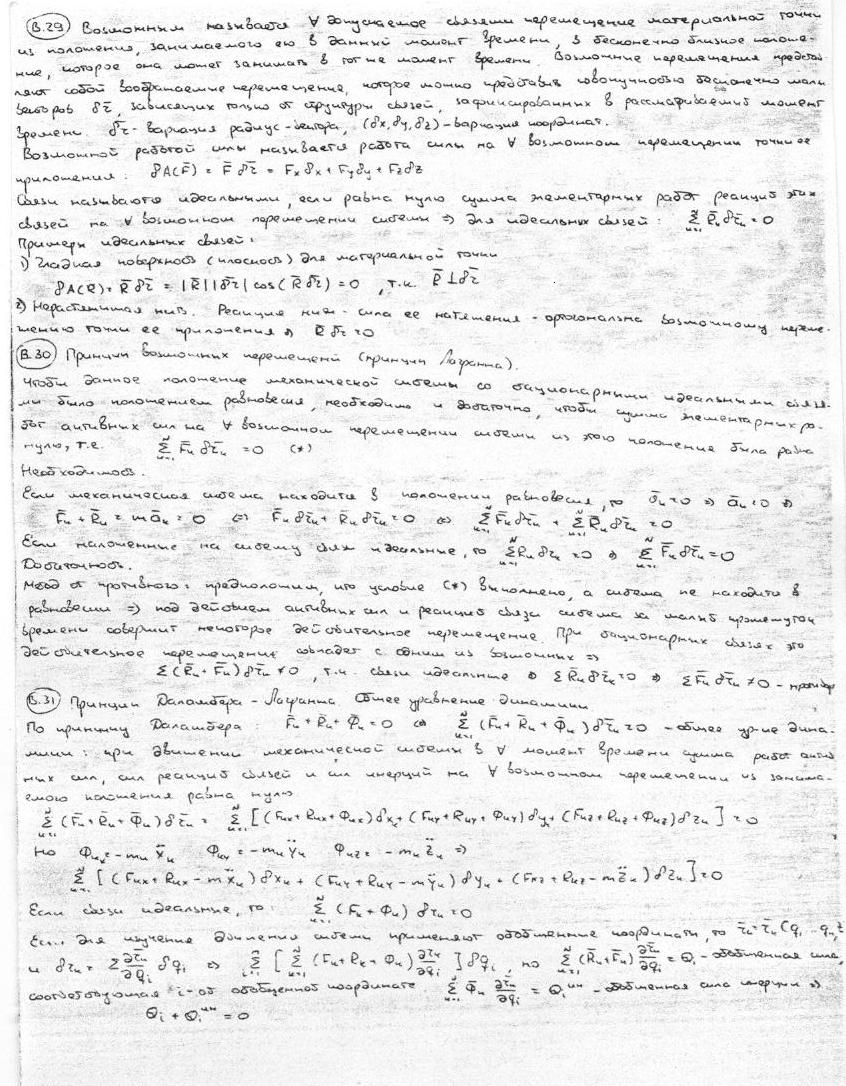 В.29 Возможным называется ∀ допускаемое связями перемещение материальной точки
из положения, занимаемого ею в данный момент времени, в бесконечно близкое положе-
ние, которое она может занимать в тот же момент времени. Возможные перемещения представ-
ляют собой воображаемые перемещения, которое можно представить совокупностью бесконечно малых
векторов δr̄, зависящих только от структуры связей, зафиксированных в рассматриваемый момент
времени. δr̄ - вариация радиус-вектора, (δx, δy, δz) - вариация координат.
Возможной работой силы называется работа силы на ∀ возможном перемещении точки ее
приложения: δA(F̄) = F̄ δr̄ = Fxδx + Fyδy + Fzδz
Связи называются идеальными, если равна нулю сумма элементарных работ реакций этих
связей на ∀ возможном перемещении системы ⇒ для идеальных связей: Σ R̄к δr̄к = 0
Примеры идеальных связей:
1) Гладкая поверхность (плоскость) для материальной точки
δA(R̄) = R̄ δr̄ = |R̄||δr̄| cos(R̄ δr̄) = 0, т.к. R̄ ⊥ δr̄
2) Нерастяжимая нить. Реакция нити - сила ее натяжения - ортогональна возможному переме-
щению точки ее приложения ⇒ R̄ δr̄ = 0
В.30 Принцип возможных перемещений (принцип Лагранжа).
Чтобы данное положение механической системы со стационарными идеальными связя-
ми было положением равновесия, необходимо и достаточно, чтобы сумма элементарных ра-
бот активных сил на ∀ возможном перемещении системы из этого положения была равна
нулю, т.е. Σ F̄к δr̄к = 0 (*)
Необходимость.
Если механическая система находится в положении равновесия, то v̄к = 0 ⇒ āк = 0 ⇒
F̄к + R̄к = māк = 0 ⇔ F̄к δr̄к + R̄к δr̄к = 0 ⇔ Σ F̄к δr̄к + Σ R̄к δr̄к = 0
Если наложенные на систему связи идеальные, то Σ R̄к δr̄к = 0 ⇒ Σ F̄к δr̄к = 0
Достаточность.
Метод от противного: предположим, что условие (*) выполнено, а система не находится в
равновесии ⇒ под действием активных сил и реакций связи система за малый промежуток
времени совершит некоторое действительное перемещение. При стационарных связях это
действительное перемещение совпадет с одним из возможных ⇒
Σ (R̄к + F̄к) δr̄к ≠ 0, т.к. связи идеальные ⇒ Σ R̄к δr̄к = 0 ⇒ Σ F̄к δr̄к ≠ 0 - противор
В.31 Принцип Даламбера - Лагранжа Общее уравнение динамики
По принципу Даламбера: F̄к + R̄к + Φ̄к = 0 ⇔ Σ (F̄к + R̄к + Φ̄к) δr̄к = 0 - общее ур-ие дина-
мики: при движении механической системы в ∀ момент времени сумма работ актив-
ных сил, сил реакций связей и сил инерций на ∀ возможном перемещении из занима-
емого положения равна нулю
Σ (F̄к + R̄к + Φ̄к) δr̄к = Σ [(Fкx + Rкx + Φкx) δxк + (Fкy + Rкy + Φкy) δyк + (Fкz + Rкz + Φкz) δzк] = 0
но Φкx = -mк ẍк Φкy = -mк ÿк Φкz = -mк z̈к ⇒
Σ [(Fкx + Rкx - mẍк) δxк + (Fкy + Rкy - mÿк) δyк + (Fкz + Rкz - mz̈к) δzк] = 0
Если связи идеальные, то: Σ (Fк + Φк) δrк = 0
Если для изучения движения системы применяют обобщенные координаты, то r̄к = r̄к (q₁ ... qₙ, t)
и δrк = Σ ∂r̄к/∂qi δqi ⇒ Σ [Σ (Fк + Rк + Φк) ∂r̄к/∂qi] δqi, но Σ (R̄к + F̄к) ∂r̄к/∂qi = Qi - обобщенная сила,
соответствующая i-ой обобщенной координате Σ Φ̄к ∂r̄к/∂qi = Qi^ин - обобщенная сила инерции ⇒
Qi + Qi^ин = 0